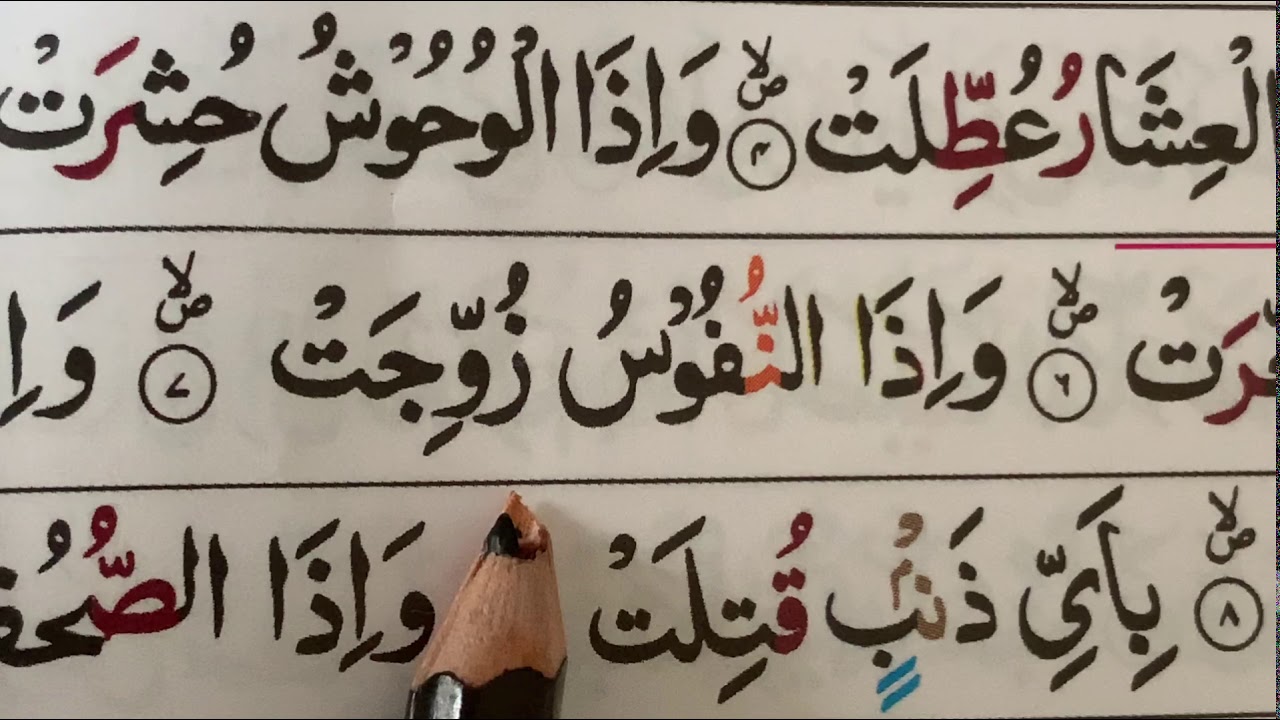 الْعِشَارُ عُطِّلَتْ ۙ ۴ وَاِذَا الْوُحُوْشُ حُشِرَتْ
وَاِذَا النُّفُوْسُ زُوِّجَتْ ۙ ۷ وَاِ
۸ بِاَىِّ ذَنْۢبٍ قُتِلَتْ وَاِذَا الصُّحُف